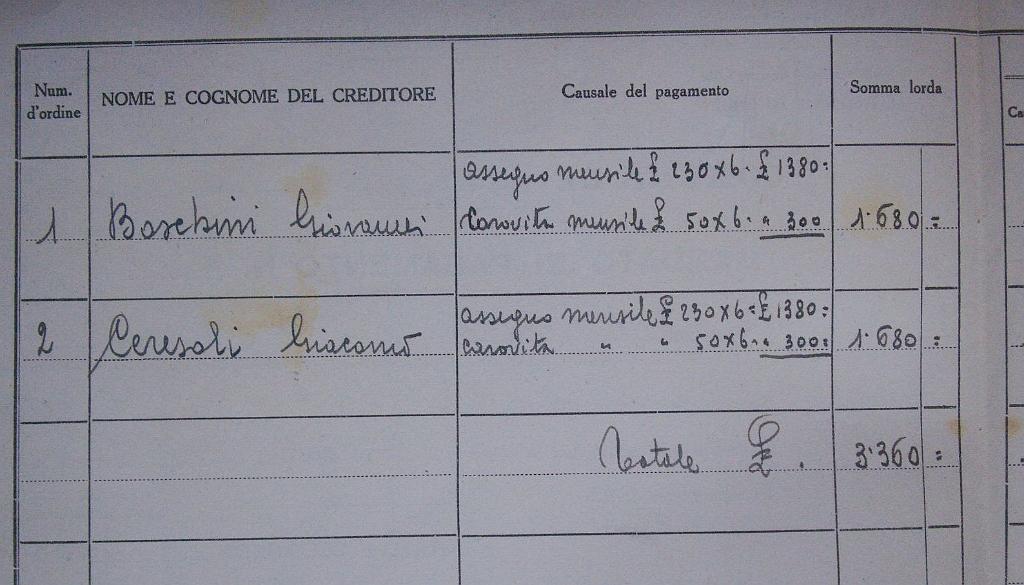 Num. d'ordine NOME E COGNOME DEL CREDITORE Causale del pagamento Somma lorda Ca
assegno mensile £ 230 x 6 = £ 1380 =
1 Boschini Giovanni Carovita mensile £ 50 x 6 = " 300 1·680 =
assegno mensile £ 230 x 6 = £ 1380 =
2 Ceresoli Giacomo carovita " " 50 x 6 = " 300 = 1·680 =
Totale £. 3·360 =